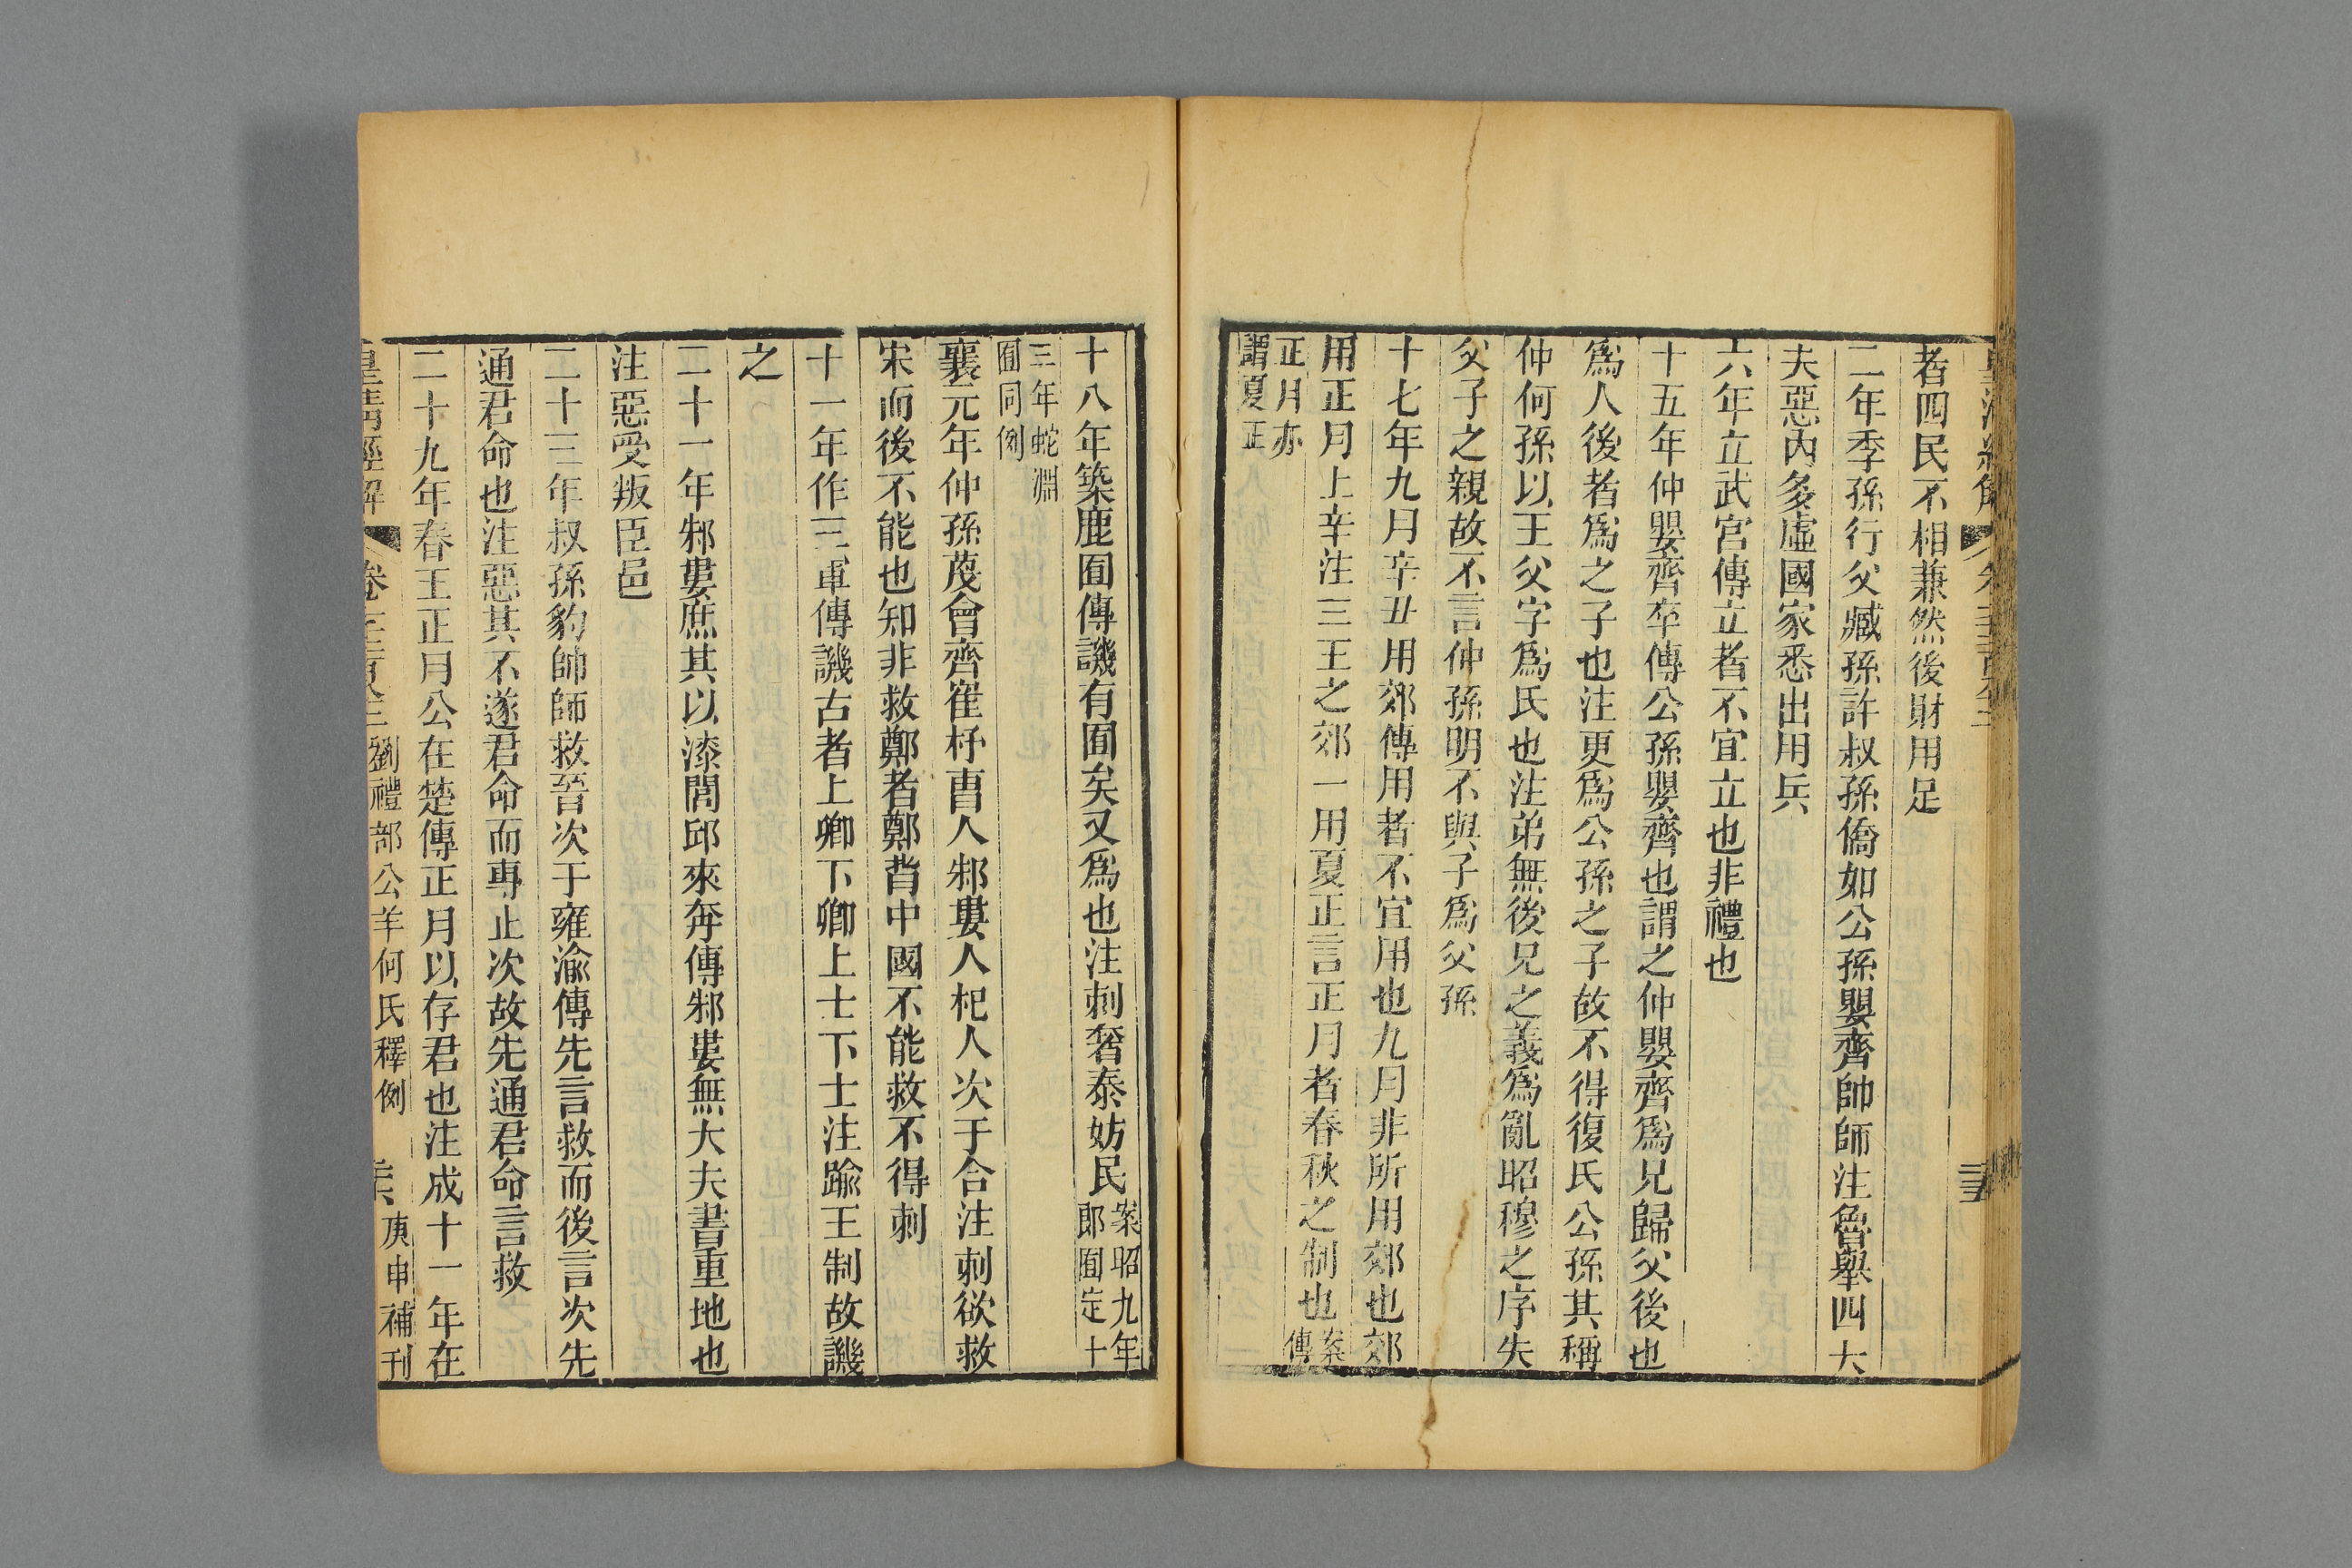 者四民不相兼然後財用足
二年季孫行父臧孫許叔孫僑如公孫嬰齊帥師注魯舉四大
夫惡內多虛國家悉出用兵
六年立武宮傳立者不宜立也非禮也
十五年仲嬰齊卒傳公孫嬰齊也謂之仲嬰齊爲兄歸父後也
爲人後者爲之子也注更爲公孫之子故不得復氏公孫其稱
仲何孫以王父字爲氏也注弟無後兄之義爲亂昭穆之序失
父子之親故不言仲孫明不與子爲父孫
十七年九月辛丑用郊傳用者不宜用也九月非所用郊也郊
用正月上辛注三王之郊一用夏正言正月者春秋之制也案傳
正月亦
謂夏正
十八年築鹿囿傳譏有囿矣又爲也注刺奢泰妨民案昭九年郎囿定十
三年蛇淵
囿同例
襄元年仲孫蔑會齊崔杼曹人邾婁人杞人次于合注刺欲救
宋而後不能也知非救鄭者鄭背中國不能救不得刺
十一年作三軍傳譏古者上卿下卿上士下士注踰王制故譏
之
二十一年邾婁庶其以漆閭邱來奔傳邾婁無大夫書重地也
注惡受叛臣邑
二十三年叔孫豹帥師救晉次于雍渝傳先言救而後言次先
通君命也注惡其不遂君命而專止次故先通君命言救
二十九年春王正月公在楚傳正月以存君也注成十一年在
皇清經解 劉禮部公羊何氏釋例 庚申補刊